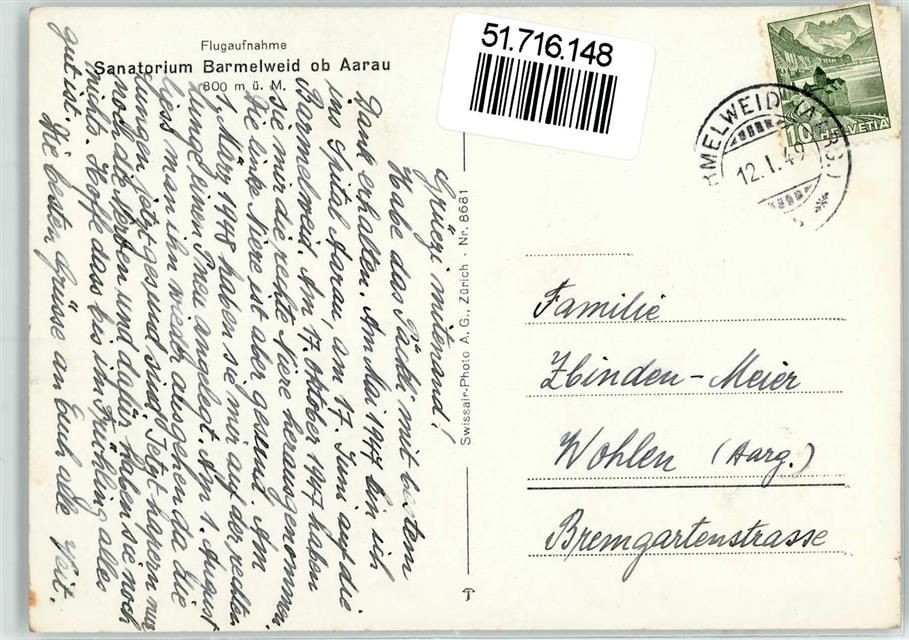 Flugaufnahme
Sanatorium Barmelweid ob Aarau
800 m ü. M.
Grüezi mitenand!
Habe das Päckli mit bestem
Dank erhalten. Am Mai 1947 bin ich
ins Spital Aarau, am 17. Juni auf die
Barmelweid. Am 7. Oktober 1947 haben
sie mir die rechte Niere herausgenommen.
Die linke Niere ist aber gesund. Am
1. März 1948 haben sie mir auf der rechten
Lunge einen Pneu angelegt. Am 1. August
liess man ihn wieder ausgehen da die
Lungen jetzt gesund sind. Jetzt hapern nur
noch die Nerven und dafür haben sie noch
nichts. Hoffe das bis im Frühling alles
gut ist. Die besten Grüsse an Euch alle Veit.
Swissair-Photo A. G., Zürich - Nr. 8681
51.716.148
10 HELVETIA
BARMELWEID (AARG.)
12.I.49
Familie
Zbinden-Meier
Wohlen (Aarg.)
Bremgartenstrasse